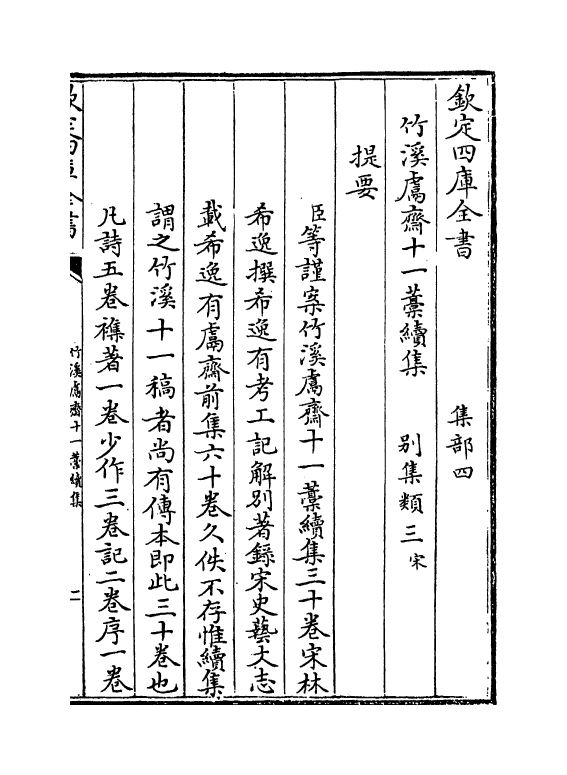 欽定四庫全書　　　集部四
竹溪鬳齋十一藁續集　　別集類三宋
提要
臣等謹案竹溪鬳齋十一藁續集三十卷宋林
希逸撰希逸有考工記解别著錄宋史藝文志
載希逸有鬳齋前集六十卷久佚不存惟續集
謂之竹溪十一稿者尚有傳本即此三十卷也
凡詩五卷襍著一卷少作三卷記二卷序一卷
欽定四庫全書
竹溪鬳齋十一藁續集